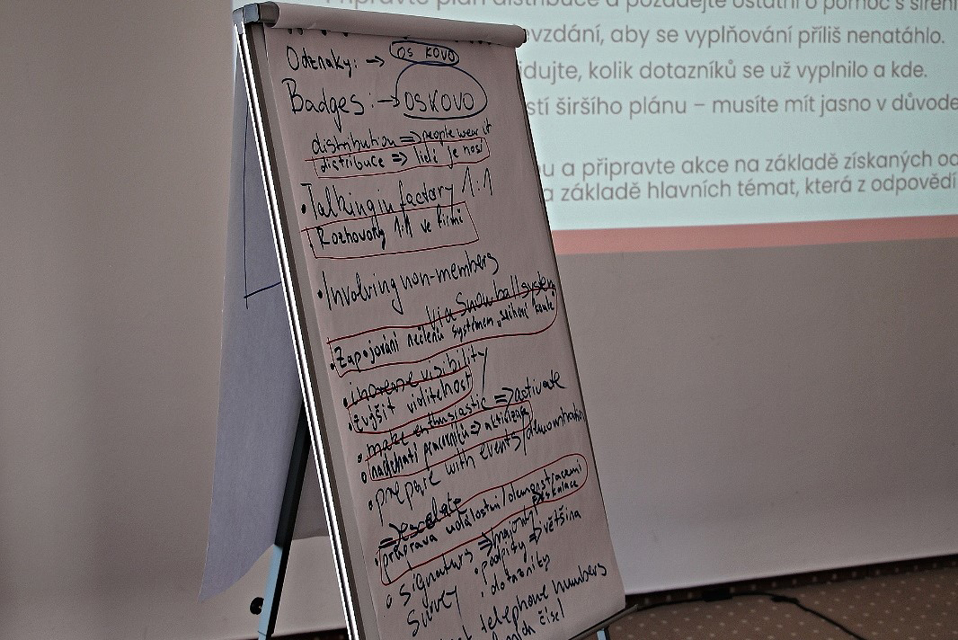 Odznaky: → OS KOVO
Badges: → OSKOVO
distribution => people wear it
distribuce => lidé je nosí
• Talking in factory 1:1
Rozhovory 1:1 ve firmě
• Involving non-members
via Snowball system
• Zapojování nečlenů systémem „sněhové koule"
• increase visibility
• zvýšit viditelnost
• make enthusiastic => activate
nadchnutí pracovníků => aktivizace
• prepare with events/demonstration
=> escalate
• příprava událostmi/demonstracemi
eskalace
• signatures => majority
• podpisy => většina
Survey • dotazníky
telephone numbers
čísel
Připravte plán distribuce a požádejte ostatní o pomoc s šířením
evzdání, aby se vyplňování příliš nenatáhlo.
dujte, kolik dotazníků se už vyplnilo a kde.
stí širšího plánu – musíte mít jasno v důvode
u a připravte akce na základě získaných od
a základě hlavních témat, která z odpovědí